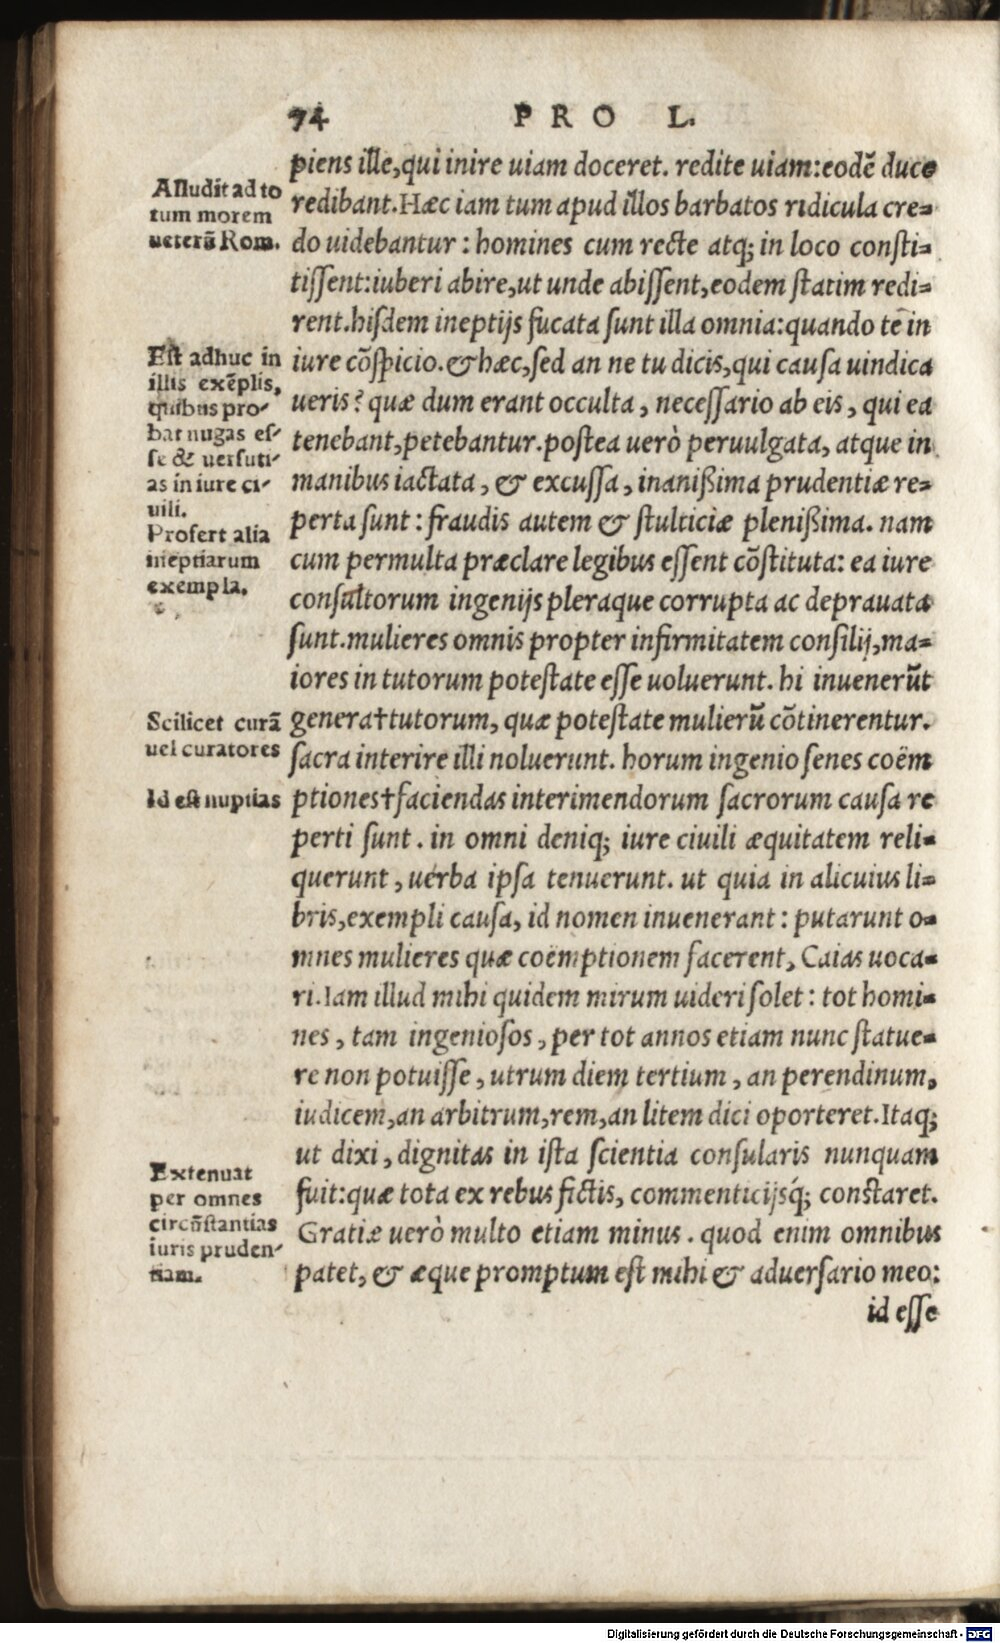 74 PRO L.
piens ille,qui inire uiam doceret. redite uiam:eodē duce
redibant.Hæc iam tum apud illos barbatos ridicula cre=
do uidebantur : homines cum recte atq; in loco consti=
tissent:iuberi abire,ut unde abissent,eodem statim redi=
rent.hisdem ineptijs fucata sunt illa omnia:quando te in
iure cōspicio.& hæc,sed an ne tu dicis,qui causa uindica
ueris? quæ dum erant occulta, necessario ab eis, qui ea
tenebant,petebantur.postea uerò peruulgata, atque in
manibus iactata, & excussa, inanißima prudentiæ re=
perta sunt : fraudis autem & stulticiæ plenißima. nam
cum permulta præclare legibus essent cōstituta: ea iure
consultorum ingenijs pleraque corrupta ac deprauata
sunt.mulieres omnis propter infirmitatem consilij,ma=
iores in tutorum potestate esse uoluerunt. hi inuenerūt
genera†tutorum, quæ potestate mulierū cōtinerentur.
sacra interire illi noluerunt. horum ingenio senes coëm
ptiones†faciendas interimendorum sacrorum causa re
perti sunt. in omni deniq; iure ciuili æquitatem reli=
querunt, uerba ipsa tenuerunt. ut quia in alicuius li=
bris,exempli causa, id nomen inuenerant : putarunt o=
mnes mulieres quæ coëmptionem facerent, Caias uoca=
ri.Iam illud mihi quidem mirum uideri solet : tot homi=
nes, tam ingeniosos, per tot annos etiam nunc statue=
re non potuisse, utrum diem tertium, an perendinum,
iudicem,an arbitrum,rem,an litem dici oporteret.Itaq;
ut dixi, dignitas in ista scientia consularis nunquam
fuit:quæ tota ex rebus fictis, commenticijsq́; constaret.
Gratiæ uerò multo etiam minus. quod enim omnibus
patet, & æque promptum est mihi & aduersario meo:
id esse
Alludit ad to
tum morem
ueterū Rom.
Est adhuc in
illis exēplis,
quibus pro-
bat nugas es-
se & uersuti-
as in iure ci-
uili.
Profert alia
ineptiarum
exempla.
Scilicet curā
uel curatores
Id est nuptias
Extenuat
per omnes
circūstantias
iuris pruden-
tiam.
Digitalisierung gefördert durch die Deutsche Forschungsgemeinschaft - DFG